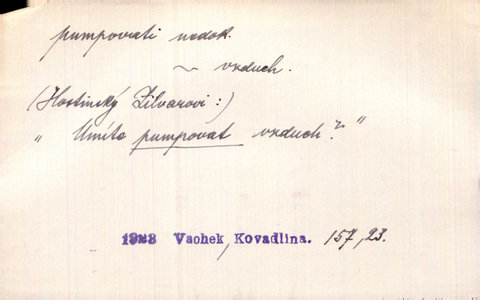 pumpovati nedok.
~ vzduch.
(Hostinský Zilvarovi:)
„ Umíte pumpovat vzduch? "
1928 Vachek, Kovadlina. 157, 23.